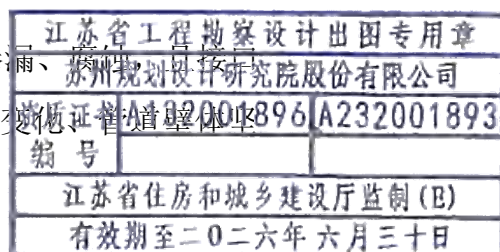 江苏省工程勘察设计出图专用章
漏、腐蚀，且接口
苏州规划设计研究院股份有限公司
资质证书 A132001896 A232001893
变化、管道壁体坚
编号
江苏省住房和城乡建设厅监制(E)
有效期至二〇二六年六月三十日